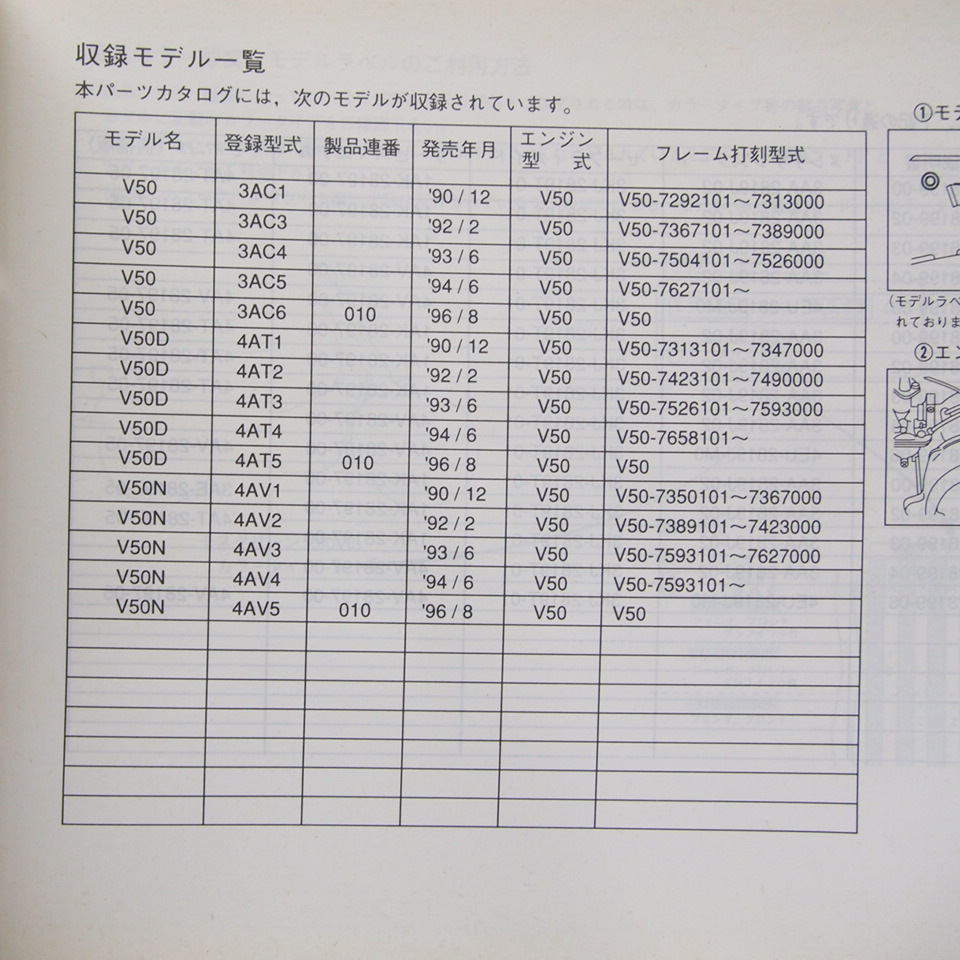 収録モデル一覧
本パーツカタログには，次のモデルが収録されています。
モデル名 登録型式 製品連番 発売年月 エンジン型式 フレーム打刻型式
V50 3AC1 '90/12 V50 V50-7292101～7313000
V50 3AC3 '92/2 V50 V50-7367101～7389000
V50 3AC4 '93/6 V50 V50-7504101～7526000
V50 3AC5 '94/6 V50 V50-7627101～
V50 3AC6 010 '96/8 V50 V50
V50D 4AT1 '90/12 V50 V50-7313101～7347000
V50D 4AT2 '92/2 V50 V50-7423101～7490000
V50D 4AT3 '93/6 V50 V50-7526101～7593000
V50D 4AT4 '94/6 V50 V50-7658101～
V50D 4AT5 010 '96/8 V50 V50
V50N 4AV1 '90/12 V50 V50-7350101～7367000
V50N 4AV2 '92/2 V50 V50-7389101～7423000
V50N 4AV3 '93/6 V50 V50-7593101～7627000
V50N 4AV4 '94/6 V50 V50-7593101～
V50N 4AV5 010 '96/8 V50 V50
①モデ
（モデルラベ
れておりま
②エン